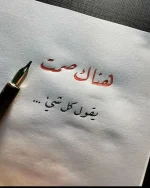 هناك صمت
يقول كل شئ ...